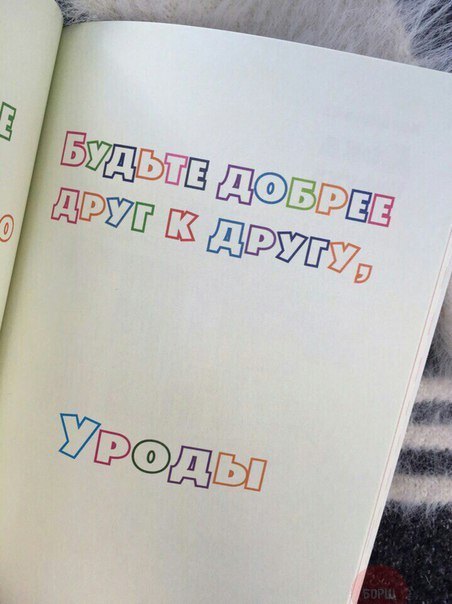 Е
О
Будьте добрее
друг к другу,
Уроды
БОРЩ